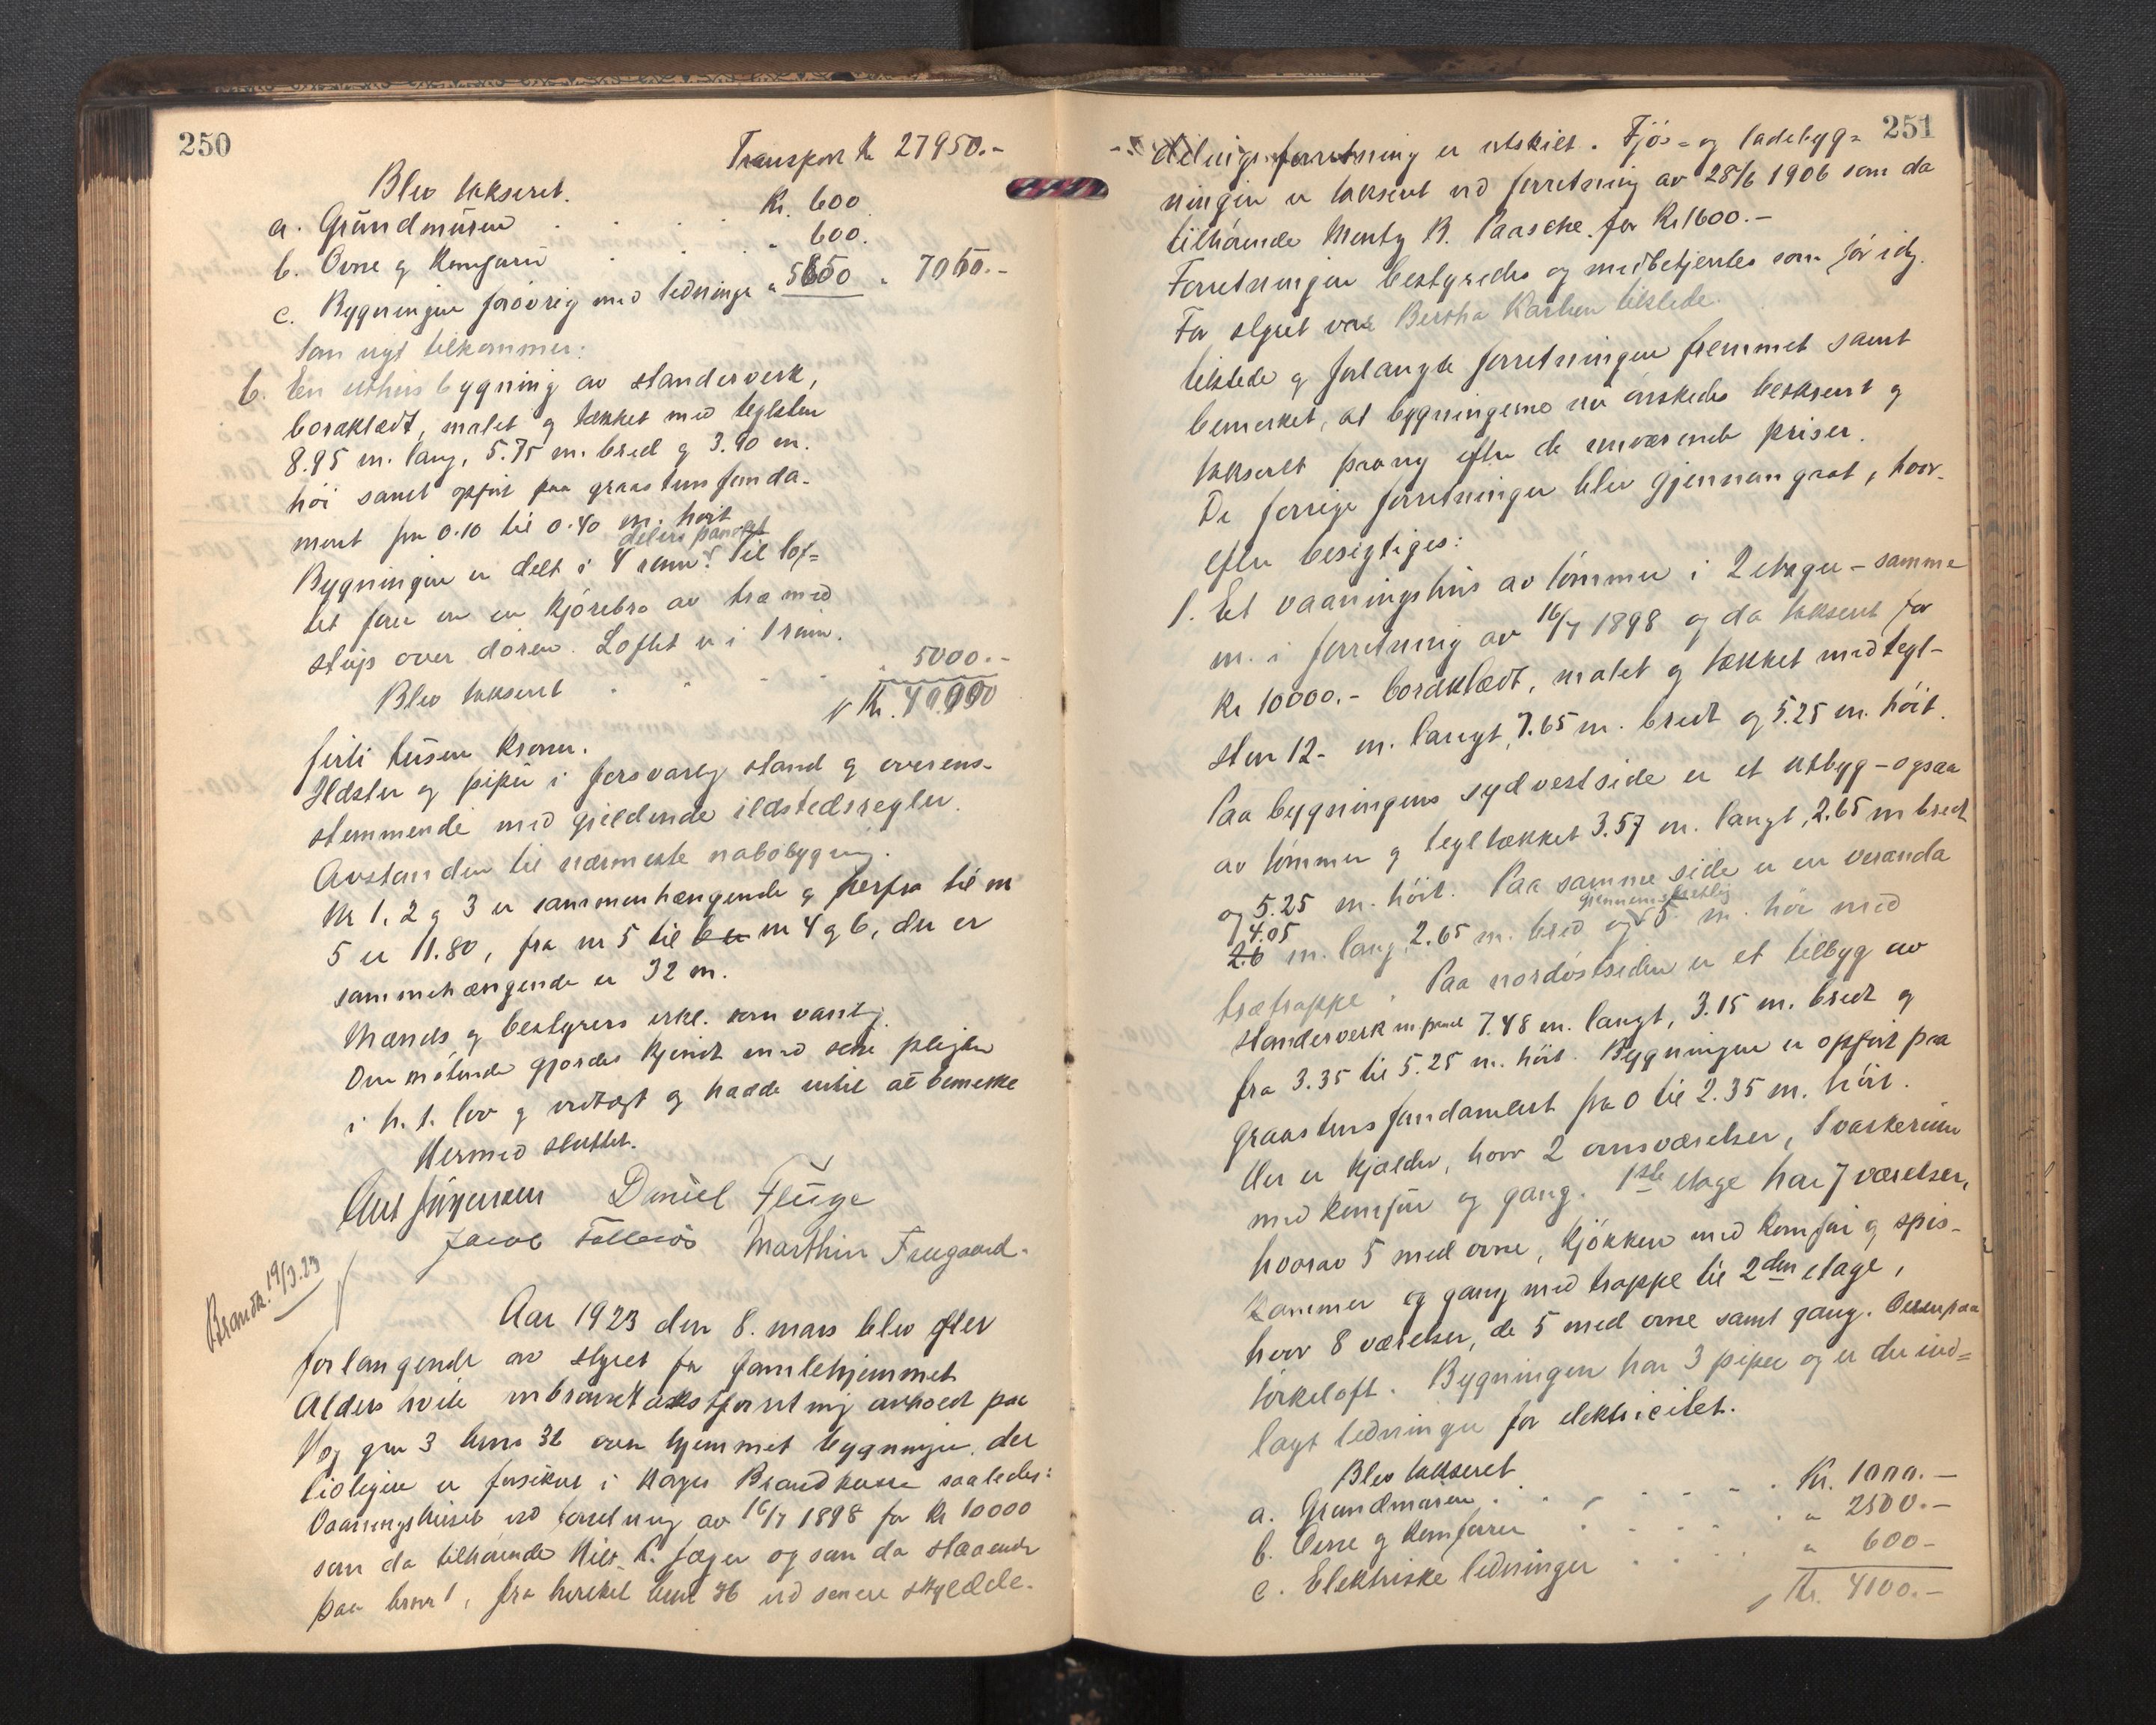 250
Transport Kr 27950.-
Blev takseret.
a. Grundmuren . . . Kr. 600.
b. Ovne og Komfurer . . . " 600.
c. Bygningen forövrig med ledninger " 5850 " 7050.-
Som nyt tilkommer:
6. En uthusbygning av standerverk,
bordklædt, malet og tækket med teglsten
8.95 m. lang, 5.75 m. bred og 3.90 m.
höi samt opfört paa graastensfunda-
ment fra 0.10 til 0.40 m. höit
delvis panelet
Bygningen er delt i 4 rum. Til lof-
tet förer en kjörebro av træ med
skyp over dören. Loftet er i 1 rum.
Blev takseret . . . " 5000.-
Kr. 40.000
firti tusen kroner.
Ildsteder og piper i forsvarlig stand og overens-
stemmende med gjeldende ildstedsregler.
Avstanden til nærmeste nabobygning.
Nr 1, 2 og 3 er sammenhængende og herfra til nr
5 er 11.80, fra nr 5 til nr 4 og 6, der er
sammenhængende er 32 m.
Mænds og bestyrers erkl. som vanlig.
Den mötende gjordes kjendt med sine pligter
i h. t. lov og vedtægt og hadde intet at bemerke
Hermed sluttet.
Daniel Fluge
Jacob Marthin
Brandk. 19/3.23
Aar 1923 den 8. mars blev efter
forlangende av styret for gamlehjemmet
Alders hvile branntakstforretning avholdt paa
gnr 3 bnr 32 over hjemmet bygninger. der
tidligere er forsikret i Norges Brandkasse saaledes:
Vaaningshuset ved forretning av 16/7 1898 for Kr 10000
som da tilhörende Nils R. Jæger og som da staaende
paa bnr 1, fra hvilket bnr 36 ved senere skyldde-
251
delingsforretning er utskilt. Fjös- og ladebyg-
ningen er takseret ved forretning av 28/6 1906 som da
tilhörende Mentz R. Paasche for Kr 1600.-
Forretningen bestyredes og medbetjentes som för idg.
For styret var Bertha Karlsen tilstede
tilstede og forlangte forretningen fremmet samt
bemerket, at bygningerne nu önskedes beskrevet og
takseret paany efter de nuværende priser.
De forrige forretninger blev gjennemgaat, hvor-
efter besigtiges:
1. Et vaaningshus av tömmer i 2 etager - samme
m. i forretning av 16/7 1898 og da takseret for
Kr 10000.- bordklædt, malet og tækket med tegl-
sten 12- m. langt, 7.65 m. bredt og 5.25 m. höit.
Paa bygningens sydvestside er et utbyg - ogsaa
av tömmer og tegltækket 3.57 m. langt, 2.65 m bredt
og 5.25 m. höit. Paa samme side er en veranda
gjennemsnitlig
4.05
2.6 m. lang, 2.65 m. bred og 5. m. höi med
trætrappe. Paa nordöstsiden er et tilbyg av
standerverk m panel 7.48 m. langt, 3.15 m. bredt og
fra 3.35 til 5.25 m. höit. Bygningen er opfört paa
graastens fundament fra 0 til 2.35 m. höit.
Der er kjælder, hvor 2 ovnsværelser, 1 vaskerum
med komfur og gang. 1ste etage har 7 værelser,
hvorav 5 med ovne, kjökken med komfur og spis-
kammer og gang med trappe til 2den etage,
hvor 8 værelser, de 5 med ovne samt gang. Ovenpaa
törkeloft. Bygningen har 3 piper og er der ind-
lagt ledninger for elektricitet.
Blev takseret
a. Grundmuren . . . Kr. 1000.-
b. Ovne og Komfurer . . . " 2500.-
c. Elektriske ledninger . . . " 600-
Kr. 4100.-